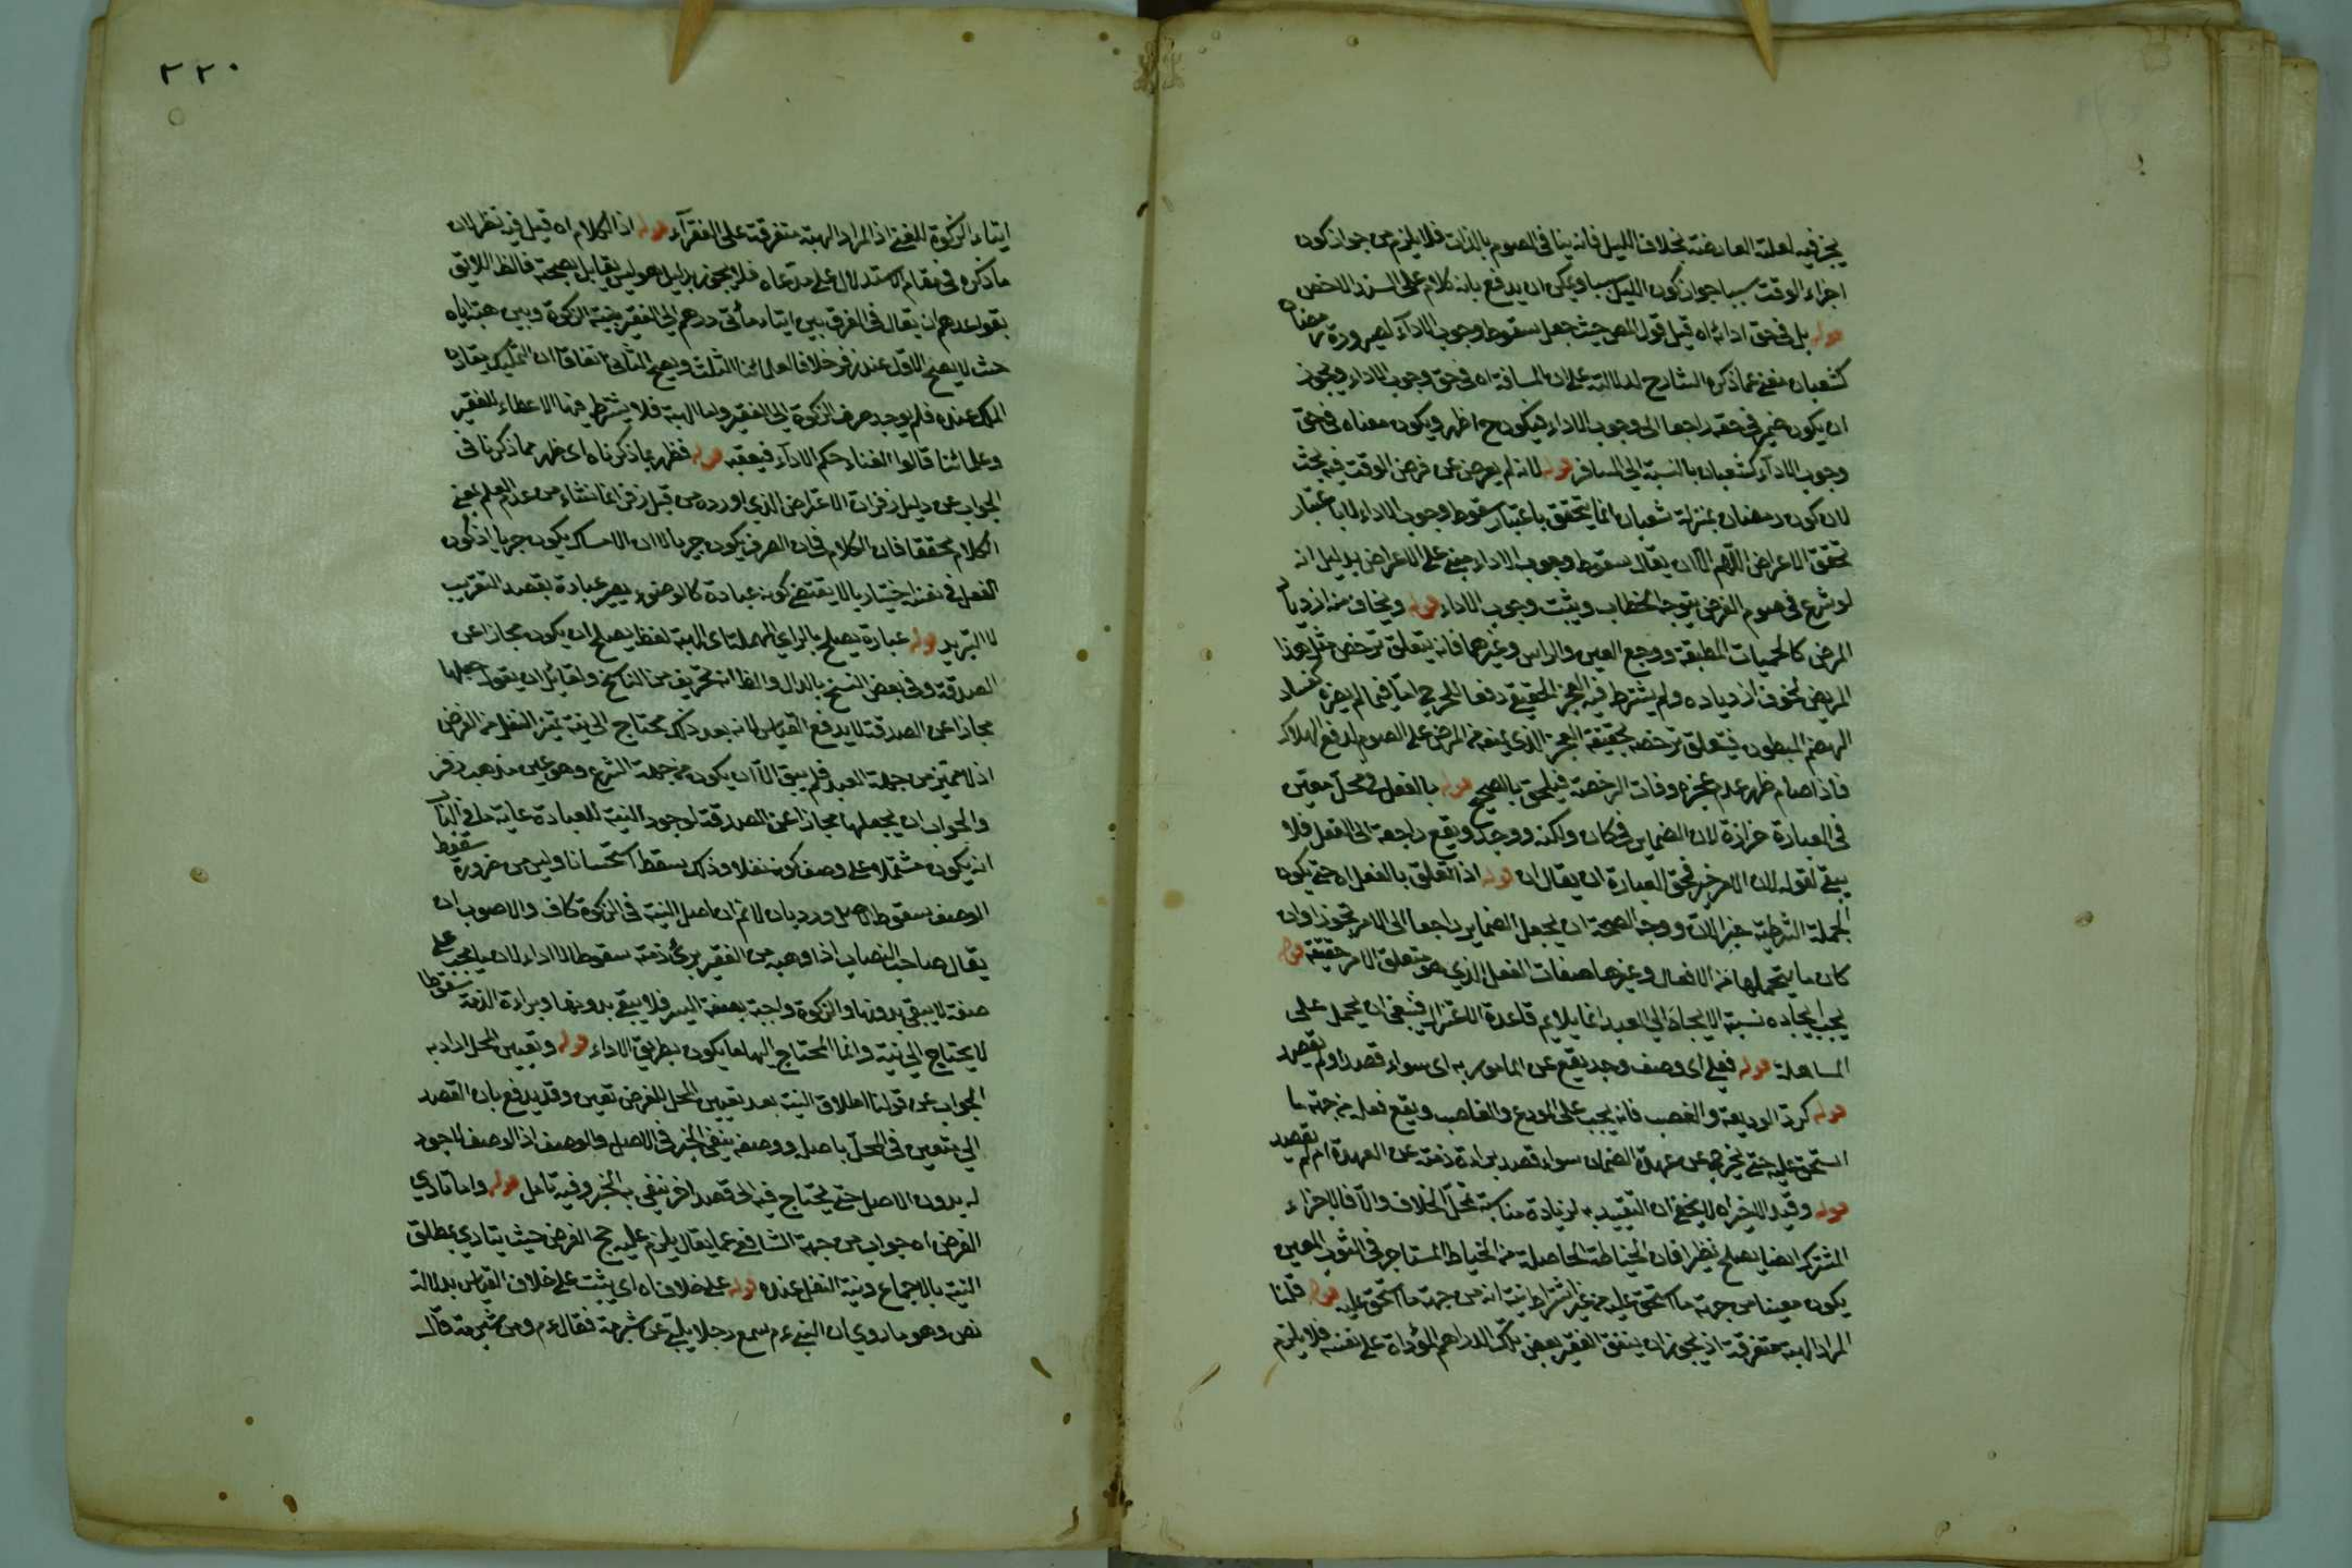 يجز فيه لعلته العارضة بخلاف الليل فانه ينافى الصوم بالذات فلا يلزم من جواز كون
اجزاء الوقت سببا جواز كون الليل سببا ويمكن ان يدفع بانه كلام على السند الاخص
قوله بل فى حق ادائه اه قيل قول المص حيث جعل سقوط وجوب الادآء لصيرورة رمضان
كشعبان مغنى عما ذكره الشارح لدلالته على ان المسافة اه فى حق وجوب الاداء ويجوز
ان يكون ضمير فى حقه راجعا الى وجوب الاداء فيكون ح اظهر ويكون معناه فى حق
وجوب الادآء كشعبان بالنسبة الى المسافر قوله لانه لم يعرض عن فرض الوقت فيه بحث
لان كون رمضان بمنزلة شعبان انما يتحقق باعتبار سقوط وجوب الاداء لا باعتبار
تحقق الاعراض اللهم الا ان يقال سقوط وجوب الاداء مبنى على الاعراض بدليل انه
لو شرع فى صوم الفرض يتوجه الخطاب ويثبت وجوب الاداء قوله ويخاف منه ازدياد
المرض كالحميات المطبقة ووجع العين والراس وغيرهما فانه يتعلق ترخص مثل هذا
المريض بخوف ازدياده ولم يشترط فيه العجز الحقيقى دفعا للحرج اما فيما لم يضره كفساد
الهضم المبطون فيتعلق ترخصه بحقيقة العجز الذى يمنعه من المرض على الصوم لدفع الهلاك
فاذا صام ظهر عدم عجزه وفات الرخصة فيلحق بالصحيح قوله بالفعل فى محل معين
فى العبارة حزازة لان الضماير فى كان ولكنه ووجد ويقع راجعة الى الفعل فلا
يبقى لقوله لان الامر خبر فحق العبارة ان يقال ان قوله اذا تعلق بالفعل اه حتى يكون
الجملة الشرطية خبر الان ووجه الصحة ان يجعل الضماير راجعا الى الامر تجوزا وان
كان ما يتحملها من الافعال وغيرها صفات الفعل الذى هو متعلق الامر حقيقة قوله
يجب ايجاده نسبة الايجاد الى العبد انما يلايم قاعدة الاعتزال فينبغى ان يحمل على
المساهلة قوله فعلى اى وصف وجد يقع عن المامور به اى سواء قصد او لم يقصد
قوله كرد الوديعة والغصب فانه يجب على المودع والغاصب ويقع فعله من جهة ما
استحق عليه حتى يخرج عن عهدة الضمان سواء قصد براءة ذمته عن العهدة ام لم يقصد
قوله وقيد الاخير اه لا يخفى ان التقييد به لزيادة مناسبة محل الخلاف والا فالاجزاء
المشترك ايضا يصلح نظيرا فان الخياطة الحاصلة من الخياط المستاجر فى الثوب المعين
يكون معينا من جهة ما استحق عليه من غير اشتراط نية انه من جهة ما استحق عليه قوله قلنا
المراد الهبة متفرقة اذ يجوز ان ينفق الفقير بعض تلك الدراهم المؤداة على نفسه فلا يلزم
٢٢٠
ايتاء الزكوة للغنى اذ المراد الهبة متفرقة على الفقرآء قوله اذ الكلام اه قيل فيه نظر لان
ما ذكره فى مقام الاستدلال على مدعاه فلا يجوز بدليل هو ليس يقابل بصحته فالظ اللايق
بقواعدهم ان يقال فى الفرق بين ايتاء مأتى درهم الى الفقير بنية الزكوة وبين هبته اياه
حيث لا يصح الاول عند زفر خلافا لعلمائنا الثلث ويصح الثانى اتفاقا ان التمليك يقارن
الملك عنده فلم يوجد صرف الزكوة الى الفقير واما الهبة فلا يشترط فيها الاعطاء للفقير
وعلمائنا قالوا الغناء حكم الادآء فيعقبه قوله فظهر بما ذكرناه اى ظهر مما ذكرنا فى
الجواب عن دليل زفر ان الاعتراض الذى اورده من قبل زفر انما نشاء من عدم العلم بمعنى
الكلام محققا فان الكلام فى ان الصرف يكون جبريا لا ان الامساك يكون جبريا اذ كون
الفعل فى نفسه اختياريا لا يقتضى كونه عبادة كالوضوء يصير عبادة بقصد التقريب
لا التبريد قوله عبارة يصلح بالراى المهملة اى الهبة لفظ يصلح ان يكون مجازا عن
الصدقة وفى بعض النسخ بالدال والظ انه تحريف من الناسخ ولقائل ان يقول جعلها
مجازا عن الصدقة لا يدفع القياس لانه بعد ذلك محتاج الى نية تميز النفل من الفرض
اذ لا مميز من جهة العبد فلم يبق الا ان يكون من جهة الشرع وهو عين مذهب زفر
والجواب ان يجعلها مجازا عن الصدقة لوجود النية للعبادة غاية ما فى الباب
انه يكون مشتملا على وصف كونه نفلا وذلك يسقط استحسانا وليس من ضرورة سقوط
الوصف سقوط الاصل ورد بان لا نم ان اصل النية فى الزكوة كاف والاصوب ان
يقال صاحب النصاب اذا وهبه من الفقير برئ ذمته سقوطا لا اداء لان ما يجب على
صفة لا يبقى بدونها والزكوة واجبة بصفة اليسر فلا يبقى بدونها وبراءة الذمة سقوطا
لا يحتاج الى نية وانما المحتاج اليها ما يكون بطريق الاداء قوله وتعيين المحل اراد به
الجواب عن قولنا اطلاق النية بعد تعيين المحل للفرض تعين وقد يدفع بان القصد
الى متعين فى المحل باصله ووصفه ينفى الجبر فى الاصل والوصف اذ الوصف لا وجود
له بدون الاصل حتى يحتاج فيه الى قصد اخر ينفى به الجبر وفيه تامل قوله واما تادى
الفرض اه جواب من جهة الشافعى عما يقال يلزم عليه حج الفرض حيث يتادى بمطلق
النية بالاجماع ونية النفل عنده قوله على خلاف اه اى يثبت على خلاف القياس بدلالة
نص وهو ما روى ان النبى ءم سمع رجلا يلبى عن شبرمة فقال ءم ومن شبرمة قال